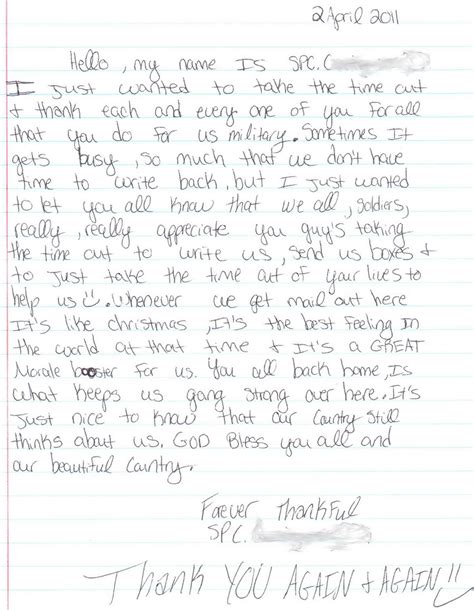 2 April 2011
Hello, my name Is SPC. C
I just wanted to take the time out
+ thank each and every one of you for all
that you do for us military. Sometimes It
gets busy, so much that we don't have
time to write back, but I just wanted
to let you all know that we all, soldiers,
really, really appreciate you guy's taking
the time out to write us, send us boxes +
to just take the time out of your lives to
help us. Whenever we get mail out here
It's like christmas, It's the best feeling In
the world at that time + It's a GREAT
Morale booster for us. You all back home, Is
what keeps us going strong over here. It's
Just nice to know that our Country still
thinks about us. GOD Bless you all and
our beautiful Country.
Forever Thankful
SPC.
Thank YOU AGAIN + AGAIN!!